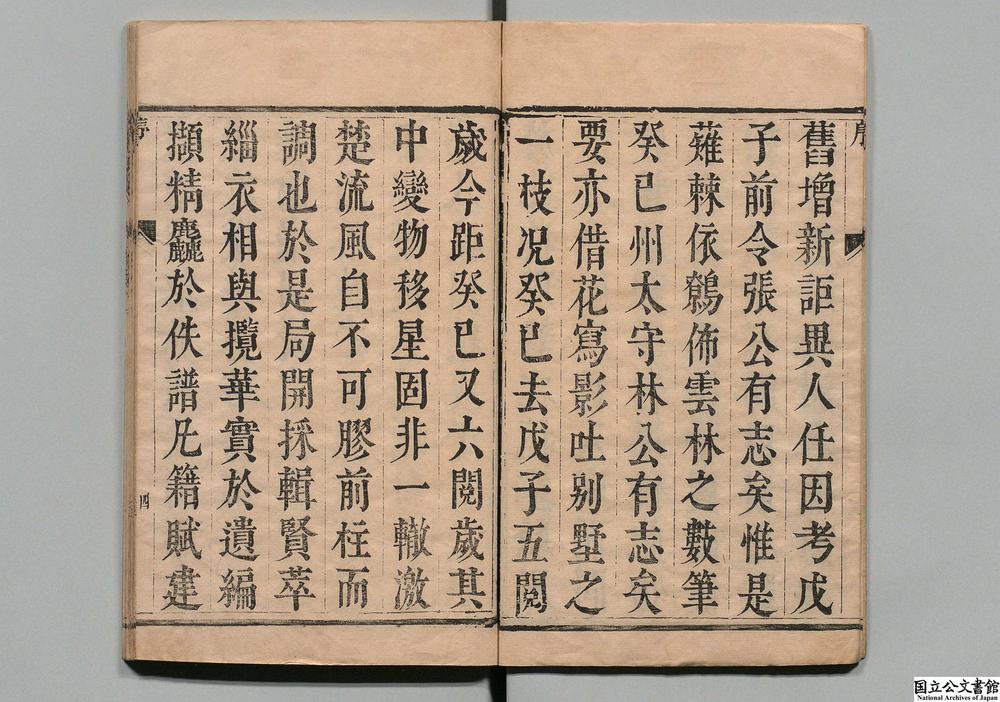 序
舊增新詎異人任因考戊
子前令張公有志矣惟是
薙棘依鶺佈雲林之數筆
癸巳州太守林公有志矣
要亦借花寫影吐别墅之
一枝况癸巳去戊子五閲
歲今距癸巳又六閲歲其
中變物移星固非一轍激
楚流風自不可膠前柱而
調也於是局開採輯賢萃
緇衣相與攬華實於遺編
擷精麤於佚譜凡籍賦建
序
四
国立公文書館
National Archives of Japan